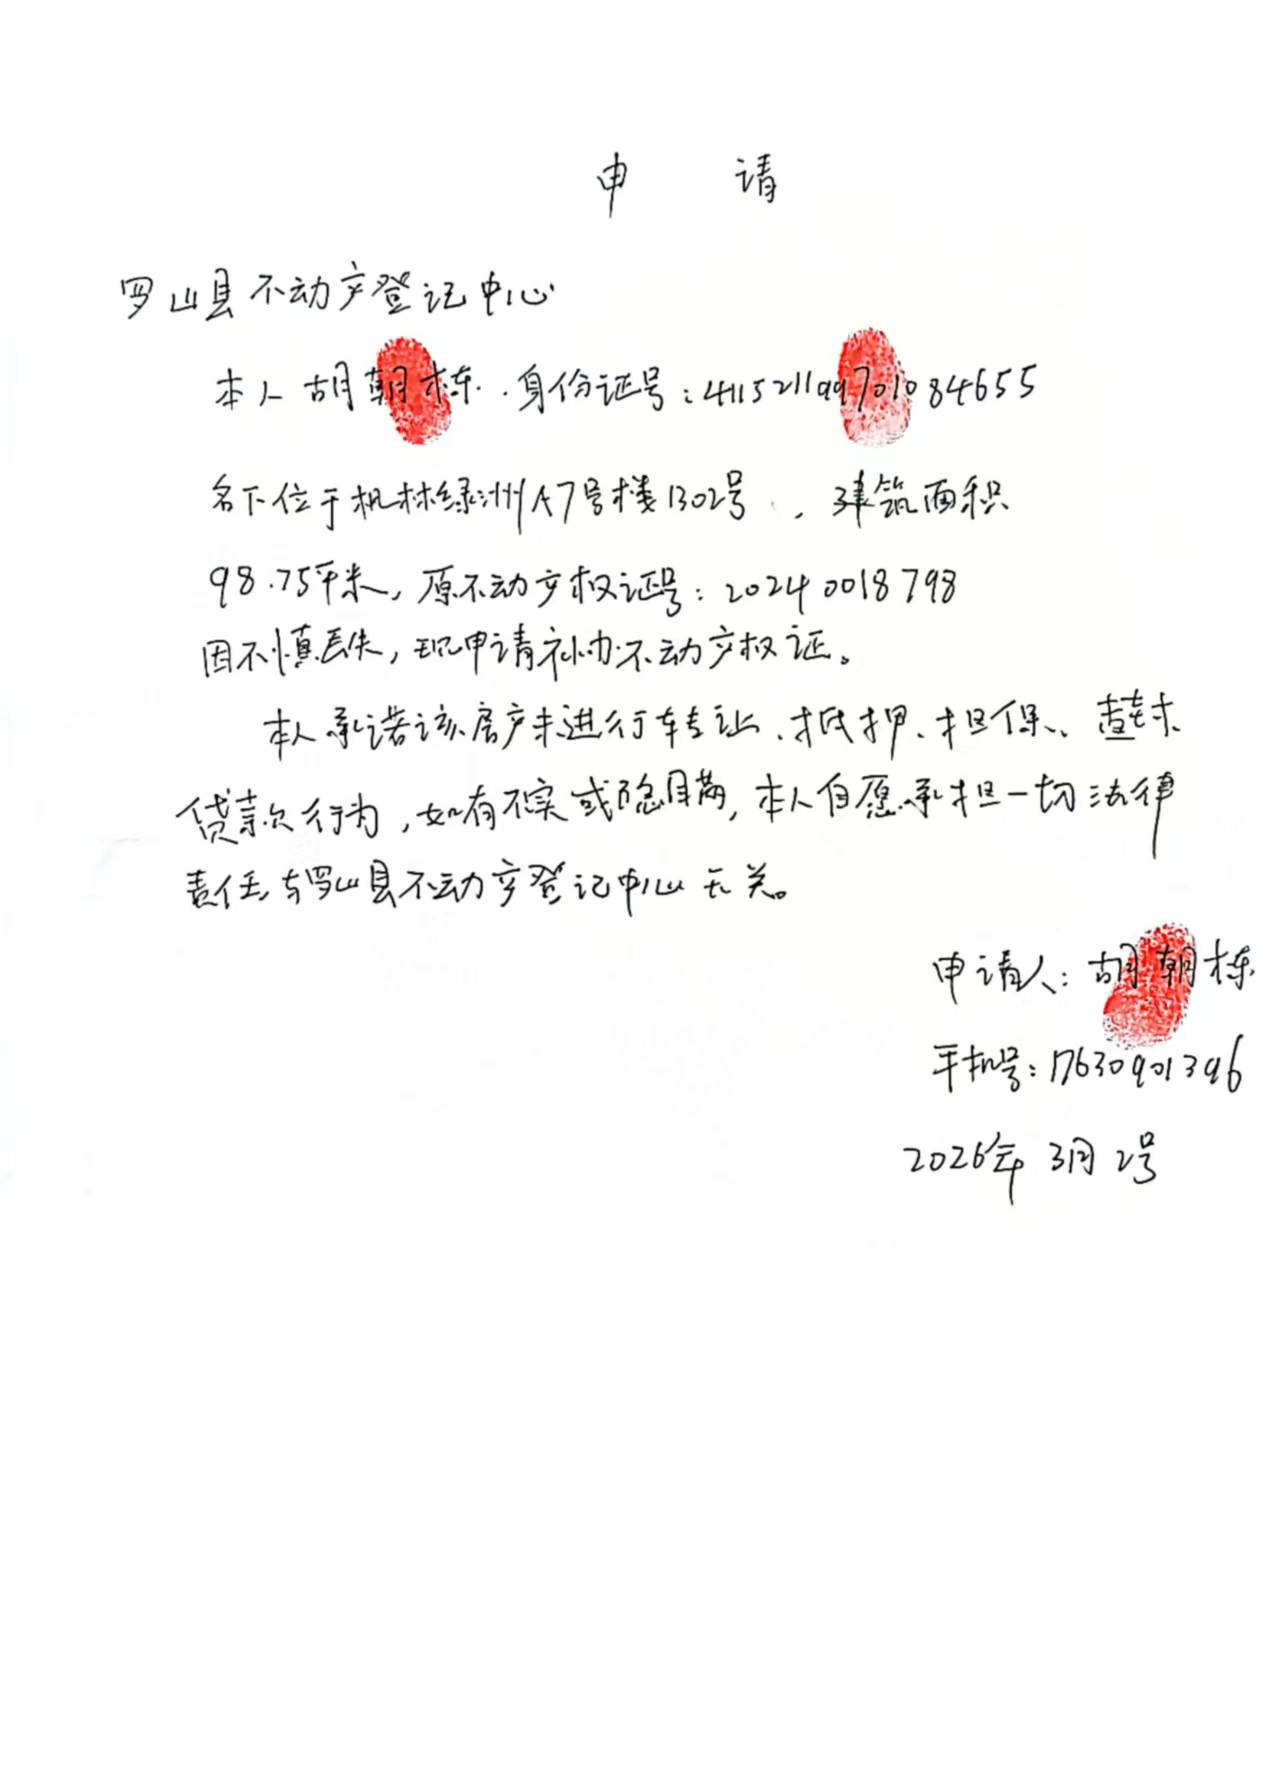 申 请
罗山县不动产登记中心
本人胡朝栋.身份证号:411521199701084655
名下位于机林绿洲A7号楼1302号,建筑面积
98.75平米,原不动产权证号:20240018798
因不慎丢失,现申请补办不动产权证。
本人承诺该房产未进行转让、抵押、担保、
贷款行为,如有不实或隐瞒,本人自愿承担一切法律
责任,与罗山县不动产登记中心无关。
申请人:胡朝栋
手机号:17630901396
2026年3月2号